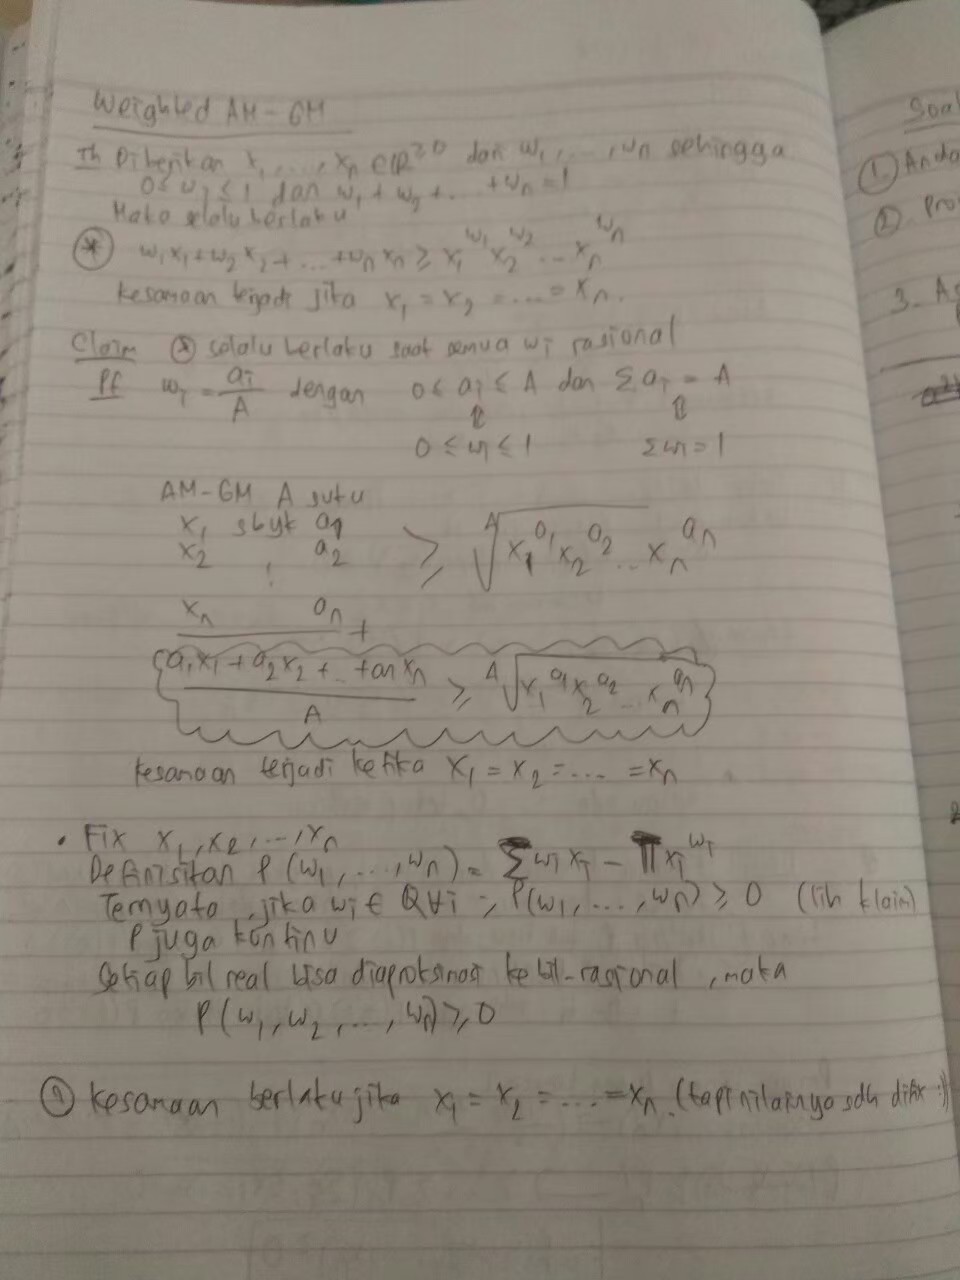 Weighted AM-GM
Th Diberikan x₁, ..., xₙ ∈ ℝ^≥0 dan w₁, ..., wₙ sehingga
0 ≤ wᵢ ≤ 1 dan w₁ + w₂ + ... + wₙ = 1
Maka selalu berlaku
(*) w₁x₁ + w₂x₂ + ... + wₙxₙ ≥ x₁^w₁ x₂^w₂ ... xₙ^wₙ
kesamaan terjadi jika x₁ = x₂ = .... = xₙ.
Claim (*) selalu berlaku saat semua wᵢ rasional
Pf wᵢ = aᵢ/A dengan 0 ≤ aᵢ ≤ A dan Σaᵢ = A
⇕ ⇕
0 ≤ wᵢ ≤ 1 Σwᵢ = 1
AM-GM A suku
x₁ sbyk a₁
x₂ a₂ ≥ ᴬ√(x₁^a₁ x₂^a₂ ... xₙ^aₙ)
⋮
xₙ aₙ +
(a₁x₁ + a₂x₂ + ... + aₙxₙ)/A ≥ ᴬ√(x₁^a₁ x₂^a₂ ... xₙ^aₙ)
kesamaan terjadi ketika x₁ = x₂ = .... = xₙ
• Fix x₁, x₂, ..., xₙ
Definisikan P(w₁, ..., wₙ) = Σwᵢxᵢ - Πxᵢ^wᵢ
Ternyata, jika wᵢ ∈ Q ∀i → P(w₁, ..., wₙ) ≥ 0 (lih klaim)
P juga kontinu
Setiap bil real bisa diaproksimasi ke bil-rasional, maka
P(w₁, w₂, ..., wₙ) ≥ 0
kesamaan berlaku jika x₁ = x₂ = .... = xₙ. (tapi nilainya sdh difix :))
Soal
1. Anda
2. Pro
3. As